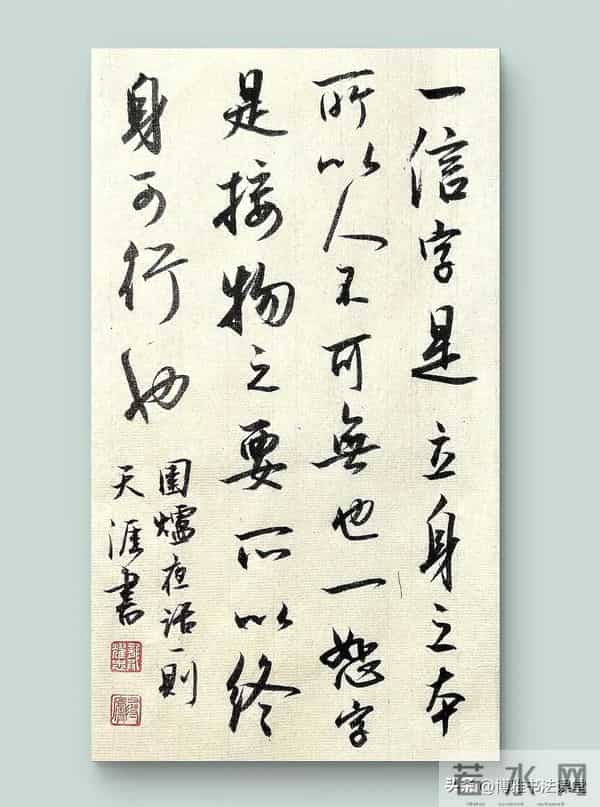 一信字是立身之本
所以人不可無也一恕字
是接物之要所以終
身可行也
圍爐夜話一則
天涯書
若水网
头条@博雅书法课堂